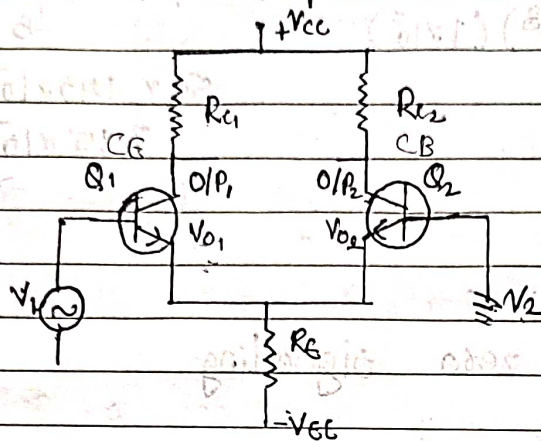 +Vcc
Rc1 Rc2
CE CB
Q1 O/P1 O/P2 Q2
Vo1 Vo2
V1 V2
RE
-VEE